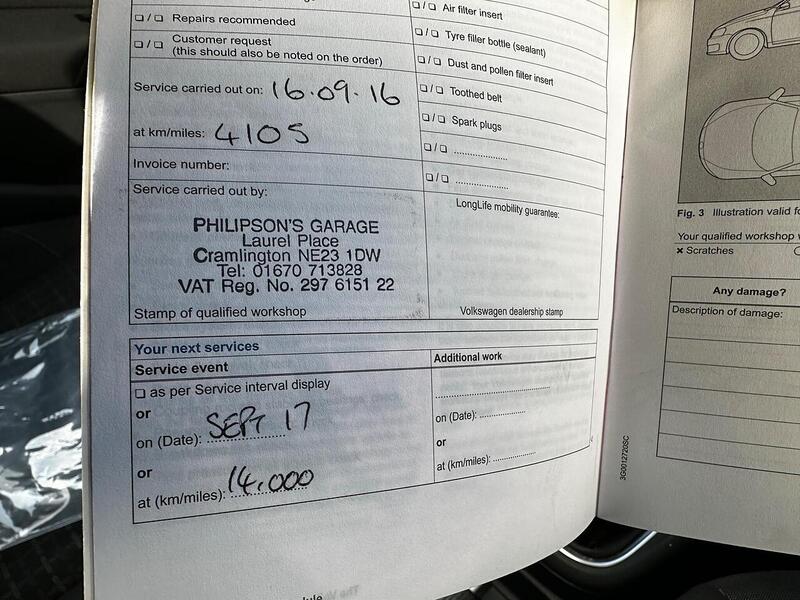 ❏ / ❏ Repairs recommended
❏ / ❏ Customer request
(this should also be noted on the order)
Service carried out on: 16.09.16
at km/miles: 4105
Invoice number:
Service carried out by:
PHILIPSON'S GARAGE
Laurel Place
Cramlington NE23 1DW
Tel: 01670 713828
VAT Reg. No. 297 6151 22
Stamp of qualified workshop
❏ / ❏ Air filter insert
❏ / ❏ Tyre filler bottle (sealant)
❏ / ❏ Dust and pollen filter insert
❏ / ❏ Toothed belt
❏ / ❏ Spark plugs
❏ / ❏ ....................
❏ / ❏ ....................
LongLife mobility guarantee:
Volkswagen dealership stamp
Your next services
Service event
❏ as per Service interval display
or
on (Date): SEPT 17
or
at (km/miles): 14,000
Additional work
....................
on (Date): ....................
or
at (km/miles): ....................
3G0012720SC
Fig. 3 Illustration valid
Your qualified workshop
× Scratches
Any damage?
Description of damage: